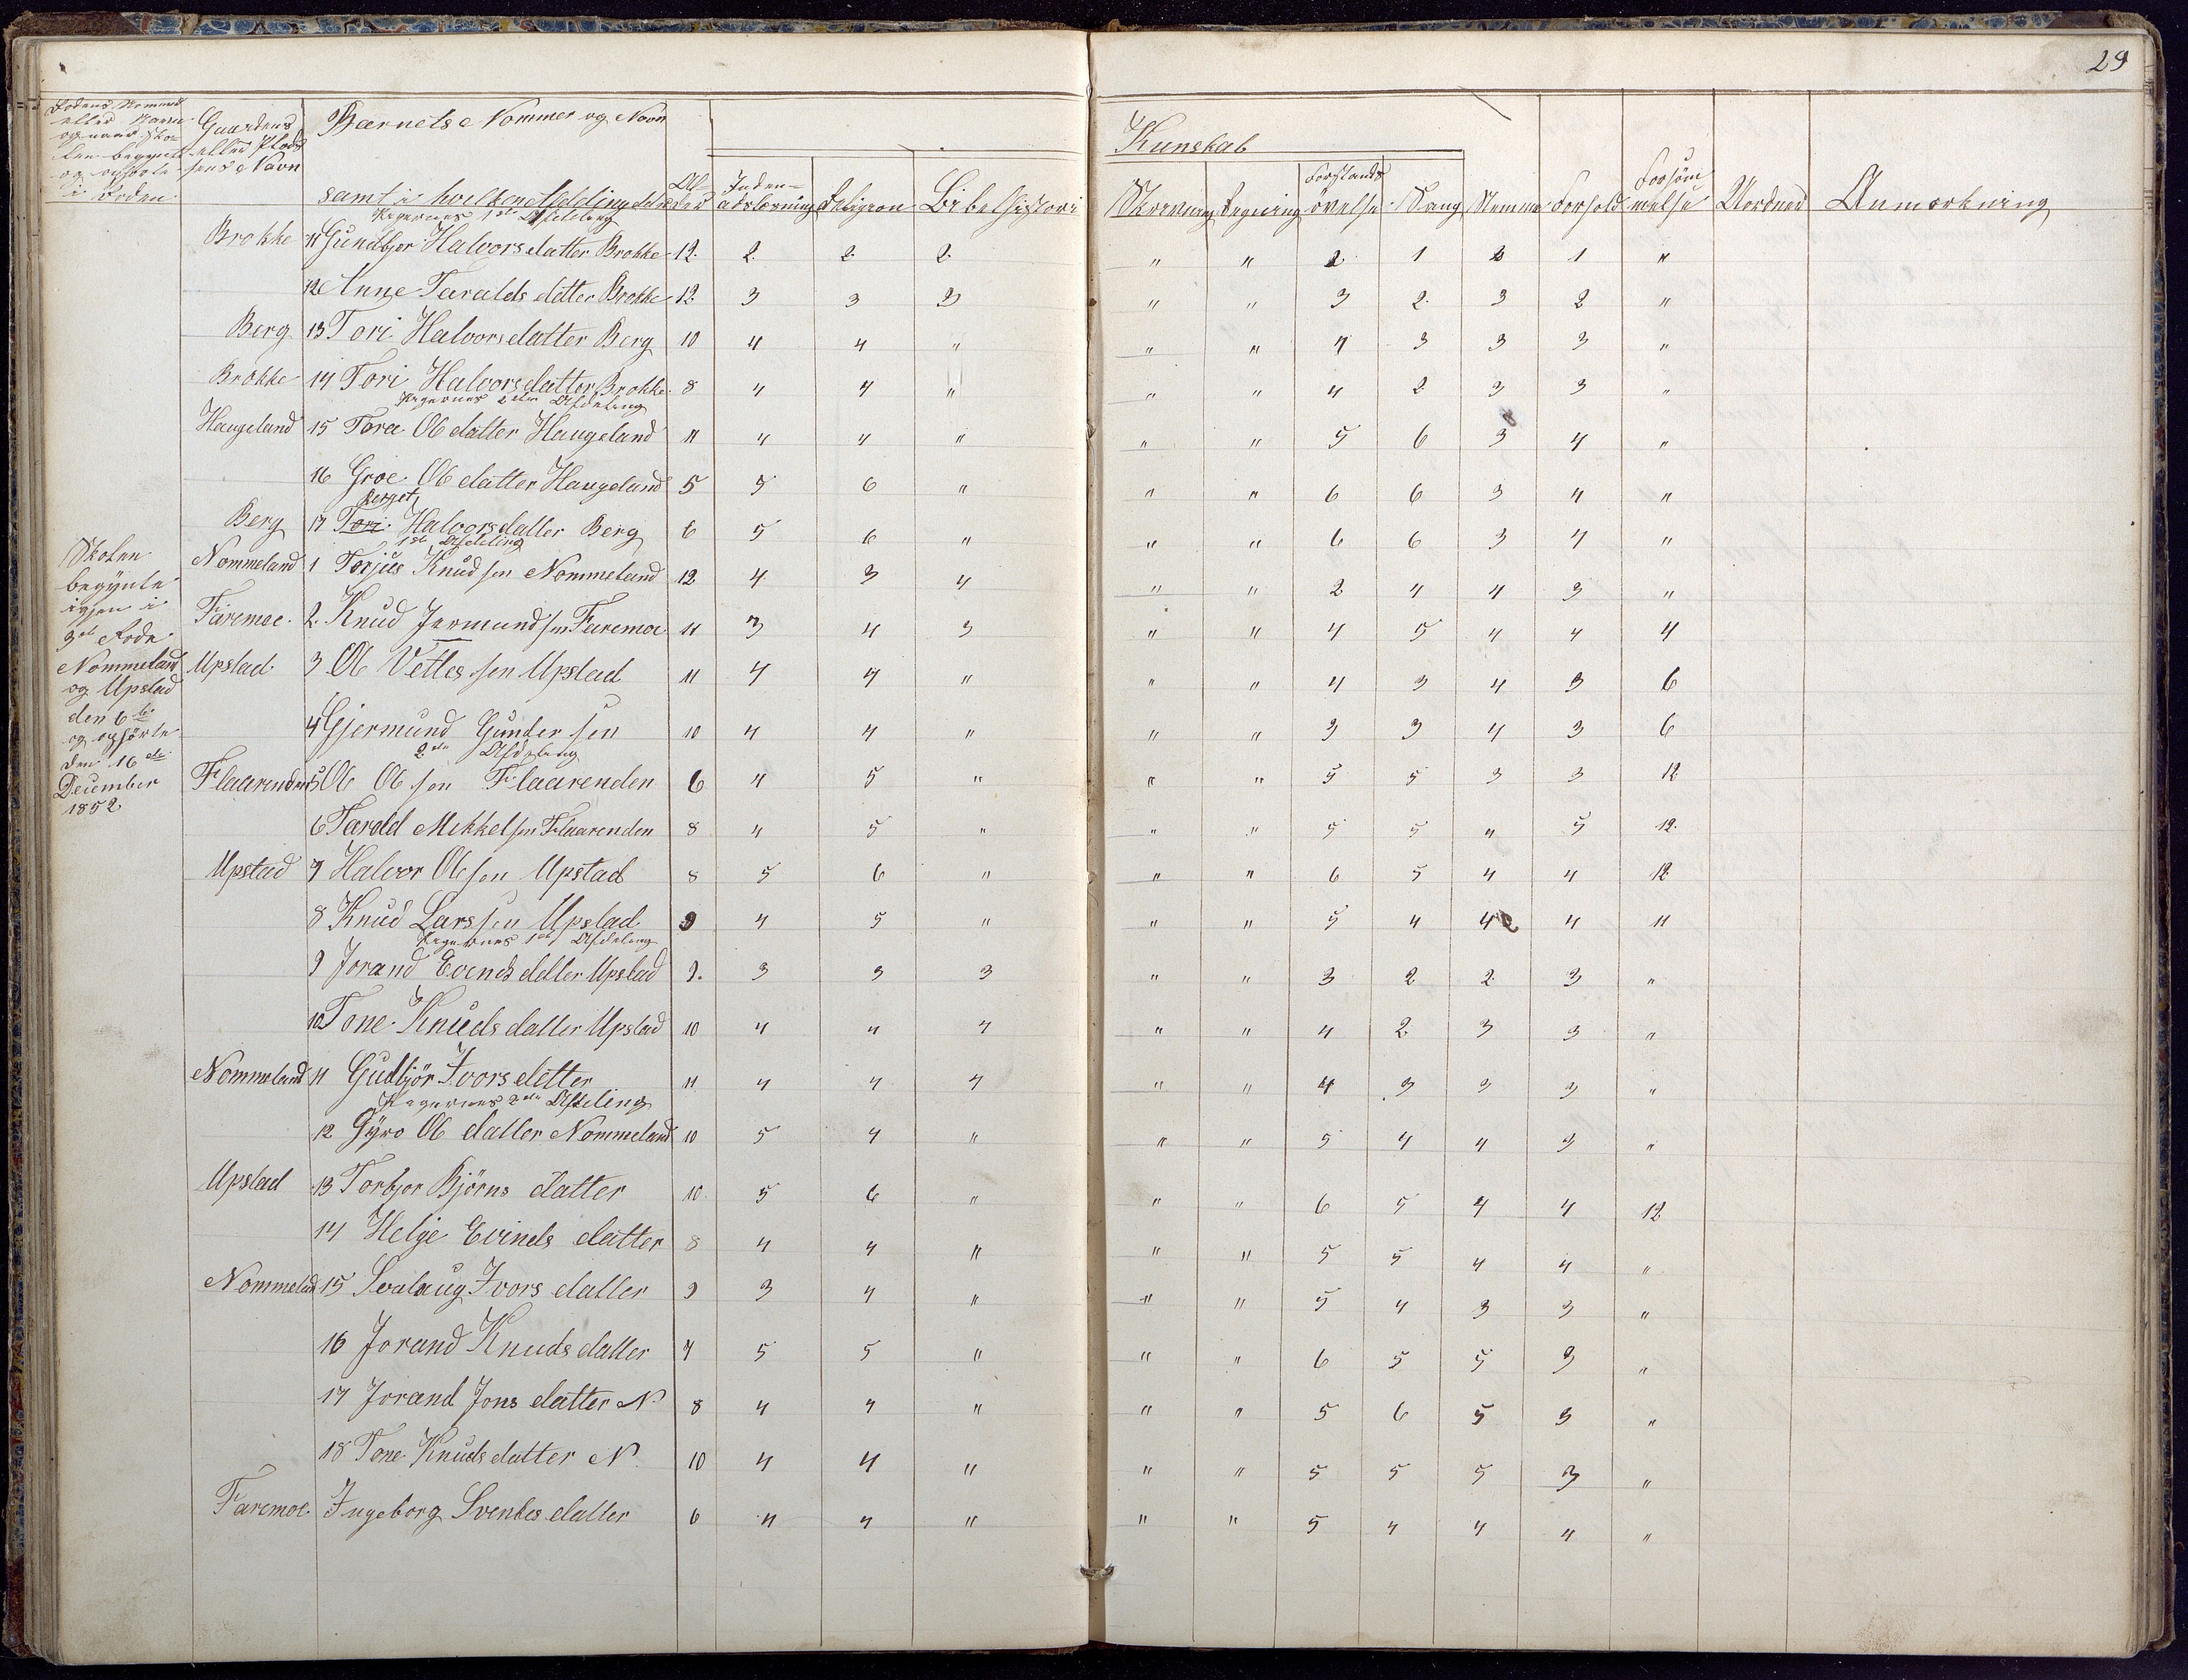 29
Rodens Nommer
eller Navn
og naar Sko-
len begynte
og ophörte
i Roden
Gaardens
eller Plad-
sens Navn
Barnets Nommer og Navn
samt i hvilken Afdeling det er
Al-
der
Inden-
adslæsning Religion Bibelhistori
Kunskab
Skrivning Regning Forstands
övelse Sang Nemme Forhold Forsöm
melse Uorden Anmerkning
Pigernes 1ste Afdeling
Brokke 11 Gunbjor Halvorsdatter Brokke 12. 2. 2. 2. " " 2 1 2 1 "
12 Anne Taralds datter Brokke 12. 3 3 3 " " 3 2. 3 2 "
Berg 13 Tori Halvorsdatter Berg 10 4 4 " " " 4 3 3 3 "
Brokke 14 Tori Halvorsdatter Brokke 8 4 4 " " " 4 2 3 3 "
Pigernes 2den Afdeling
Haugeland 15 Tora Ol datter Haugeland 11 4 4 " " " 5 6 3 4 "
16 Groe Ol datter Haugeland 5 5 6 " " " 6 6 3 4 "
Berget
Berg 17 Tori Halvorsdatter Berg 6 5 6 " " " 6 6 3 4 "
1ste Afdeling
Skolen
begynte
igjen i
3de Rode
Nommeland
og Upstad
den 6te
og ophörte
den 16de
December
1852
Nommeland 1 Torjus Knudsen Nommeland 12 4 3 4 " " 2 4 4 3 "
Faremoe. 2. Knud Jermundsen Faremoe 11 3 4 3 " " 4 5 4 4 4
Upstad 3 Ol Vetlesen Upstad 11 4 4 " " " 4 3 4 3 6
4 Gjermund Gundersen 10 4 4 " " " 3 3 4 3 6
2den Afdeling
Flaarenden 5 Ol Olsen Flaarenden 6 4 5 " " " 5 5 3 3 12
6 Tarald Mikkelsen Flaarenden 8 4 5 " " " 5 5 4 5 12.
Upstad 7 Halvor Olsen Upstad 8 5 6 " " " 6 5 4 4 12
8 Knud Larssen Upstad 9 4 5 " " " 5 4 4 4 11
Pigernes 1ste Afdeling
9 Jorand Evinds datter Upstad 9. 3 3 3 " " 3 2 2 3 "
10 Tone Knuds datter Upstad 10 4 4 4 " " 4 2. 3 3 "
Nommeland 11 Gudbjör Ivors datter 11 4 4 4 " " 4 3 3 3 "
Pigernes 2den Afdeling
12 Gyro Ol datter Nommeland 10 5 4 " " " 5 4 4 3 "
Upstad 13 Torbjor Björns datter 10. 5 6 " " " 6 5 4 4 12
14 Helge Evinds datter 8 4 4 " " " 5 5 4 4 "
Nommelad 15 Svalaug Ivors datter 9 3 4 " " " 5 4 3 3 "
16 Jorand Knuds datter 7 5 5 " " " 6 5 5 3 "
17 Jorand Jons datter N 8 4 4 " " " 5 6 5 3 "
18 Tone Knuds datter N. 10 4 4 " " " 5 5 5 3 "
Faremoe. Ingeborg Svenkes datter 6 4 4 " " " 5 4 4 4 "